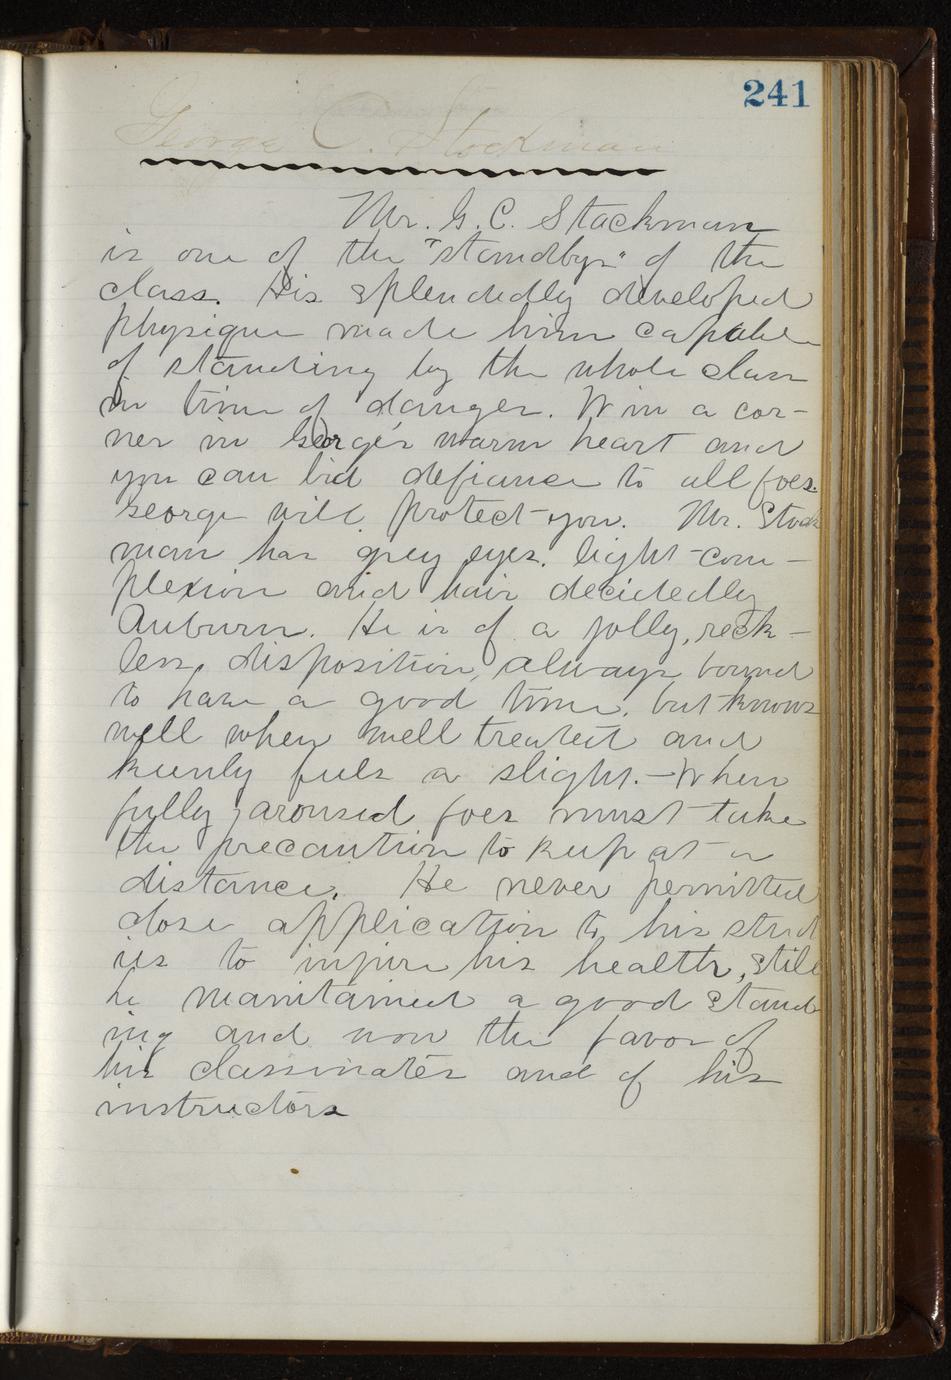 241
George C. Stockman
Mr. G. C. Stackman
is one of the "standbys" of the
class. His splendedly developed
physique made him capable
of standing by the whole class
in time of danger. Win a cor-
ner in George's warm heart and
you can bid defiance to all foes.
George will protect you. Mr. Stock
man has grey eyes. light com-
plexion and hair decidedly
Auburn. He is of a jolly, reck-
less, disposition, always bound
to have a good time, but knows
well when well treated and
keenly feels a slight.—When
fully aroused foes must take
the precaution to keep at a
distance. He never permitted
close application to his stud
ies to injure his health, still
he maintained a good stand
ing and won the favor of
his classmates and of his
instructors